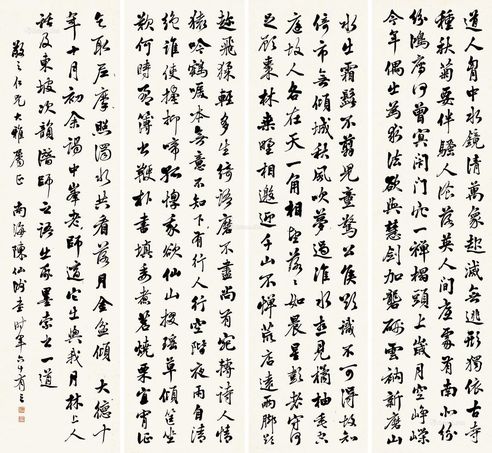 道人胷中水鏡清萬象起滅無逃形獨依古寺
種秋菊要伴騷人飡落英人間底處有南北紛
紛鴻雁何曾冥閉門坐穴一禪榻頭上歲月空崢嶸
今年偶出為求法欲與慧劍加礱硎雲衲新磨山
水出霜髭不翦兒童驚公侯欲識不可得故知
倚市無傾城秋風吹夢過淮水想見橘柚垂空
庭故人各在天一角相望落落如晨星彭老守何
足顧棗林桒野相邀迎千山不憚荒店遠兩脚欲
趁飛猱輕多生綺語磨不盡尚有宛轉詩人情
猿吟鶴唳本無意不知下有行人行空階夜雨自清
絕誰使掩抑啼孤惸我欲仙山掇瑤草傾筐坐
歎何時盈簿書鞭朴晝填委煮茗燒栗宜宵征
乞取尼摩照濁水共看落月金盆傾 大德十
年十月初余謁中峯老師道出與我月林上人
話及東坡次韻潛師之語出墨索書一道
敬之仁兄大雅屬正 南海陳仙書時年六十有三